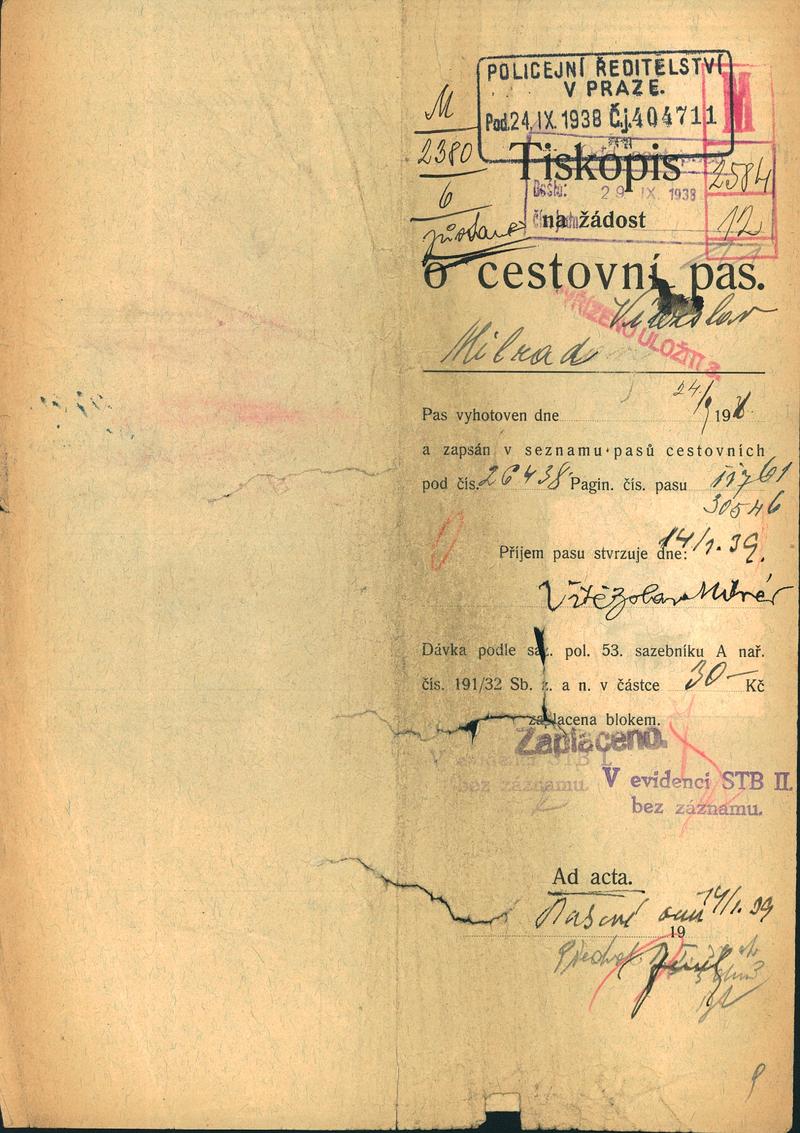 POLICEJNÍ ŘEDITELSTVÍ
V PRAZE.
Pod. 24. IX. 1938 Č.j. 404711
M
M
2380
6
Tiskopis
2584
Došlo: 29 IX. 1938
na žádost
12
o cestovní pas.
VYŘÍZENO ULOŽITI
Vítězslav
Milrad
Pas vyhotoven dne 24/9 19
a zapsán v seznamu pasů cestovních
pod čís. 26438 Pagin. čís. pasu 11761
30546
Příjem pasu stvrzuje dne: 14/1. 39.
Vítězslav
Dávka podle saz. pol. 53. sazebníku A nař.
čís. 191/32 Sb. z. a n. v částce 30— Kč
zaplacena blokem.
Zaplaceno.
V evidenci STB I.
bez záznamu.
V evidenci STB II.
bez záznamu.
Ad acta.
14/1. 39
19